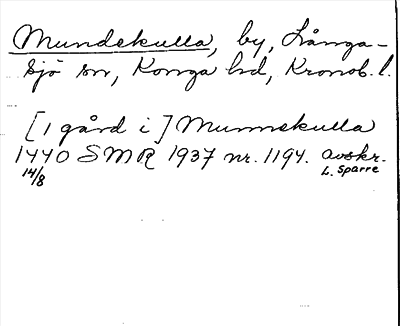 Mundekulla, by, Långa-
sjö sn, Konga hd, Kronob. l.
[1 gård i] Munnskulla
1440 SMR 1937 nr. 1194. avskr.
14/8 L. Sparre